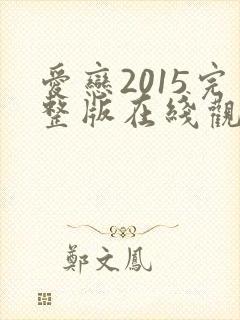 愛戀2015完
整版在綫觀
鄭文鳳